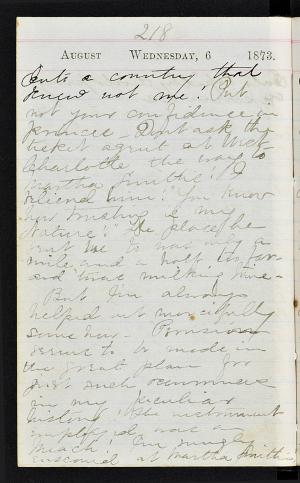 218
AUGUST WEDNESDAY, 6 1873.
Into a country that
knew not me! Put
not your confidence in
Don't ask the
ticket agent at West
Charlotte the way to
Martha Smiths! I
believed him! You know
how trusting is my
nature! The place he
sent me to was only a
mile and a half too far
and that milking time -
But I'm always
helped out mercifully
some how - Provision
seems to be made in
the great plan for
just such occurrences
in my peculiar
history! The instrument
employed was a
I'm snugly
ensconced at Martha Smiths